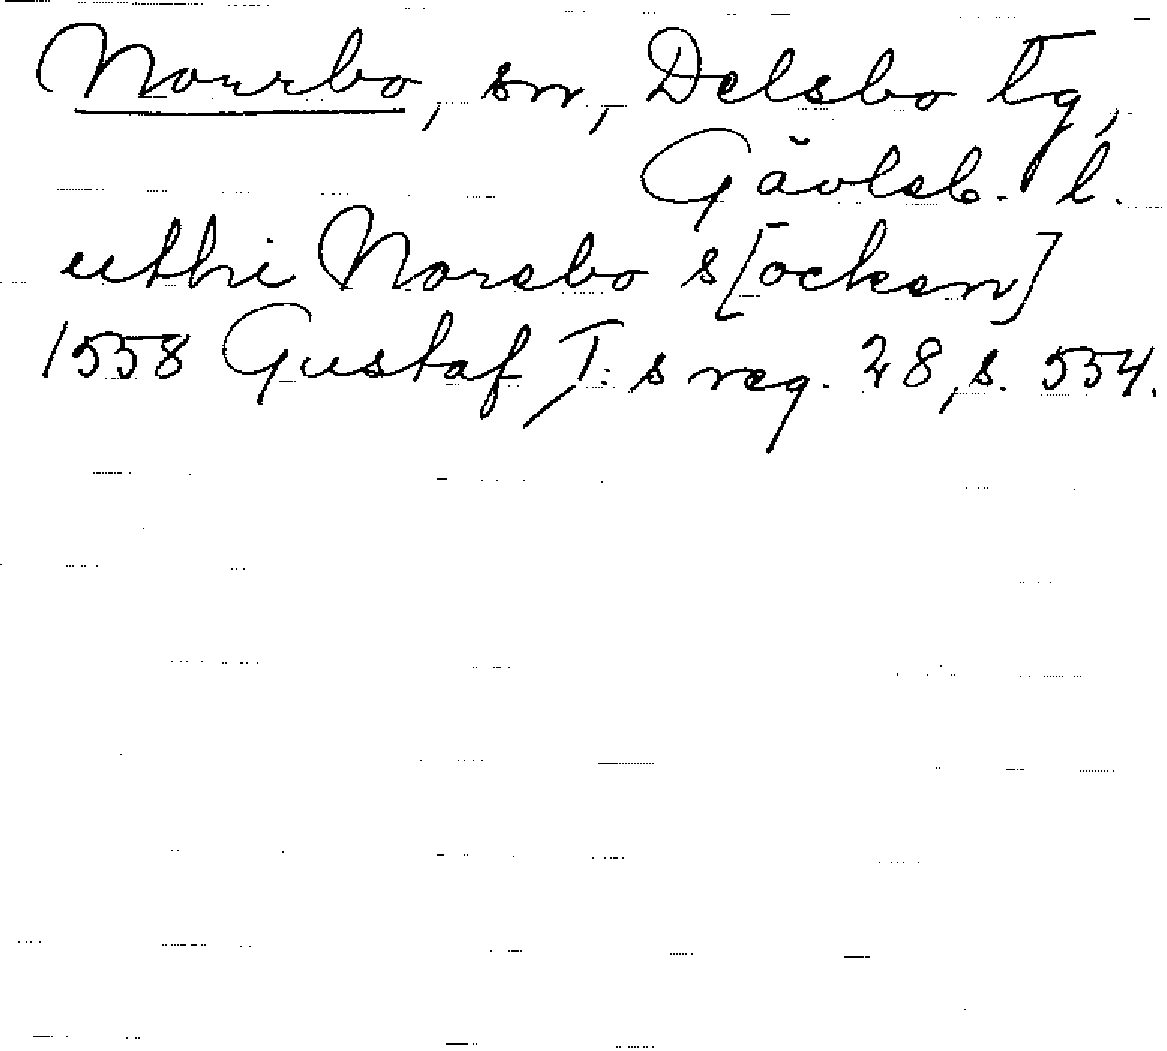 Norrbo, sn, Delsbo tg,
Gävleb. l.
utthi Norsbo s[ocken]
1558 Gustaf I:s reg. 28, s. 554.